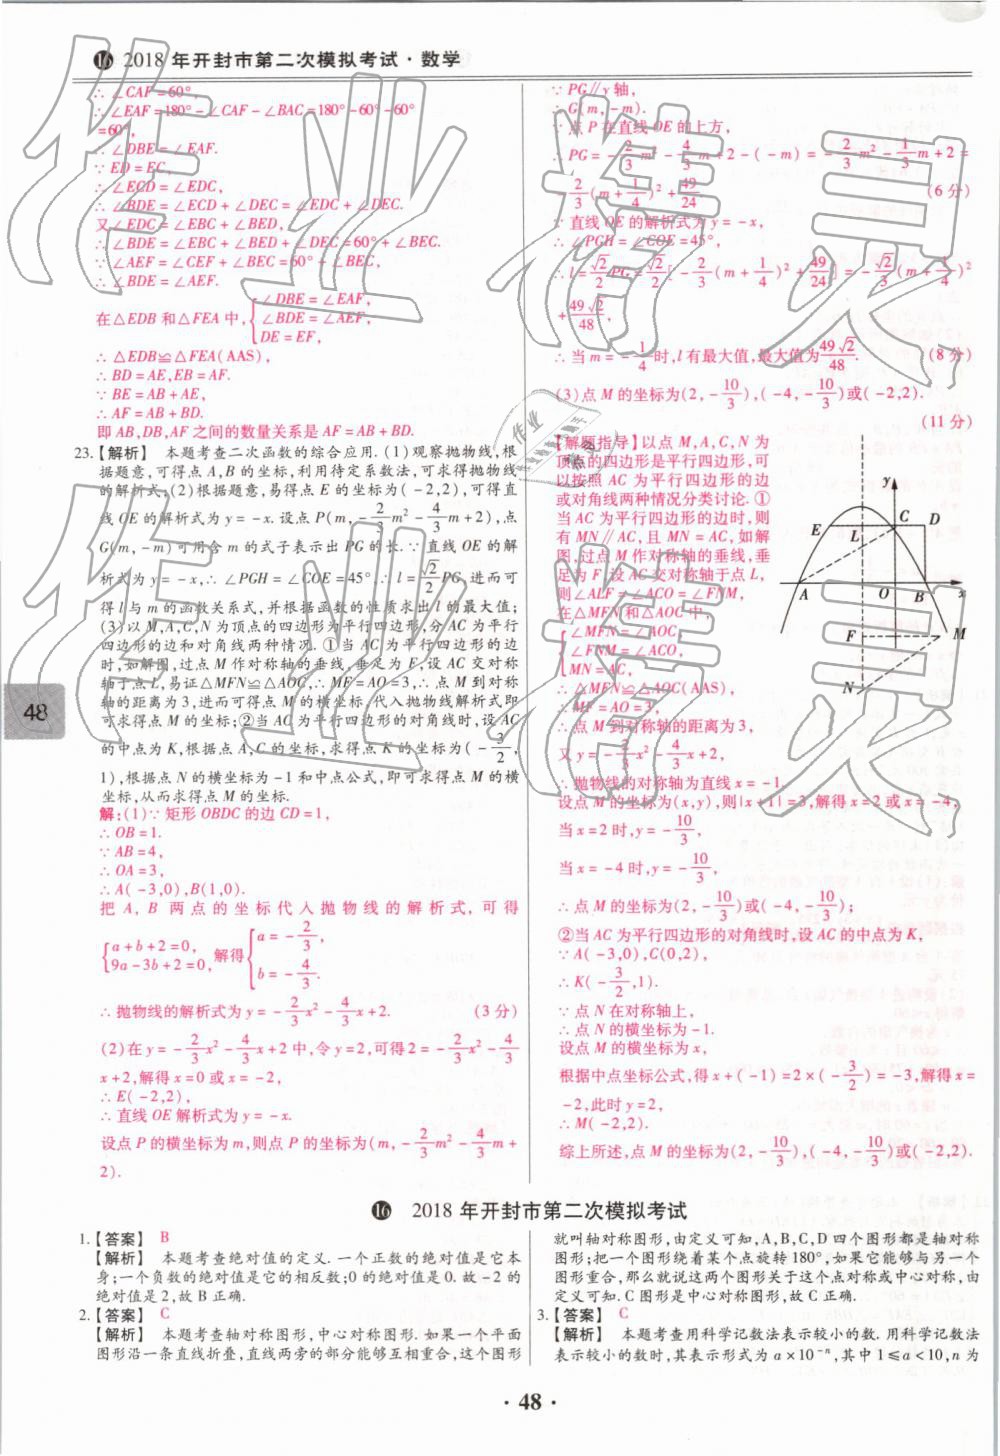 ⑯ 2018 年开封市第二次模拟考试 · 数学
∴ ∠CAF = 60°,
∴ ∠EAF = 180° − ∠CAF − ∠BAC = 180° − 60° − 60°
= 60°,
∴ ∠DBE = ∠EAF.
∵ ED = EC,
∴ ∠ECD = ∠EDC,
∴ ∠BDE = ∠ECD + ∠DEC = ∠EDC + ∠DEC.
又∠EDC = ∠EBC + ∠BED,
∴ ∠BDE = ∠EBC + ∠BED + ∠DEC = 60° + ∠BEC.
∵ ∠AEF = ∠CEF + ∠BEC = 60° + ∠BEC,
∴ ∠BDE = ∠AEF.
在△EDB 和△FEA 中, { ∠DBE = ∠EAF,
∠BDE = ∠AEF,
DE = EF,
∴ △EDB≌△FEA(AAS),
∴ BD = AE, EB = AF.
∵ BE = AB + AE,
∴ AF = AB + BD.
即 AB, DB, AF 之间的数量关系是 AF = AB + BD.
23.【解析】 本题考查二次函数的综合应用. (1)观察抛物线,根
据题意,可得点 A, B 的坐标,利用待定系数法,可求得抛物线
的解析式;(2)根据题意,易得点 E 的坐标为( −2,2),可得直
线 OE 的解析式为 y = −x. 设点 P(m, −2/3m² − 4/3m + 2),点
G(m, −m)可用含 m 的式子表示出 PG 的长. ∵ 直线 OE 的解
析式为 y = −x, ∴ ∠PGH = ∠COE = 45°, ∴ l = √2/2 PG,进而可
得 l 与 m 的函数关系式,并根据函数的性质求出 l 的最大值;
(3)以 M, A, C, N 为顶点的四边形为平行四边形,分 AC 为平行
四边形的边和对角线两种情况. ①当 AC 为平行四边形的边
时,如解图,过点 M 作对称轴的垂线,垂足为 F,设 AC 交对称
轴于点 L,易证△MFN≌△AOC, ∴ MF = AO = 3, ∴ 点 M 到对称
轴的距离为 3,进而可得点 M 的横坐标,代入抛物线解析式即
可求得点 M 的坐标;②当 AC 为平行四边形的对角线时,设 AC
的中点为 K,根据点 A, C 的坐标,求得点 K 的坐标为( −3/2,
1),根据点 N 的横坐标为 −1 和中点公式,即可求得点 M 的横
坐标,从而求得点 M 的坐标.
解:(1)∵ 矩形 OBDC 的边 CD = 1,
∴ OB = 1.
∵ AB = 4,
∴ OA = 3,
∴ A( −3,0), B(1,0).
把 A, B 两点的坐标代入抛物线的解析式,可得
{ a + b + 2 = 0,
9a − 3b + 2 = 0, 解得 { a = −2/3,
b = −4/3.
∴ 抛物线的解析式为 y = −2/3x² − 4/3x + 2. (3 分)
(2)在 y = −2/3x² − 4/3x + 2 中,令 y = 2,可得 2 = −2/3x² − 4/3
x + 2,解得 x = 0 或 x = −2,
∴ E( −2,2),
∴ 直线 OE 解析式为 y = −x.
设点 P 的横坐标为 m,则点 P 的坐标为(m, −2/3m² − 4/3m +
2).
∵ PG∥y 轴,
∴ G(m, −m).
∵ 点 P 在直线 OE 的上方,
∴ PG = −2/3m² − 4/3m + 2 − ( −m) = −2/3m² − 1/3m + 2 =
−2/3(m + 1/4)² + 49/24. (6 分)
∵ 直线 OE 的解析式为 y = −x,
∴ ∠PGH = ∠COE = 45°,
∴ l = √2/2 PG = √2/2 [ −2/3(m + 1/4)² + 49/24 ] = −√2/3(m + 1/4)²
+ 49√2/48,
∴ 当 m = −1/4 时, l 有最大值,最大值为 49√2/48. (8 分)
(3)点 M 的坐标为(2, −10/3), ( −4, −10/3)或( −2,2).
(11 分)
【解题指导】以点 M, A, C, N 为
顶点的四边形是平行四边形,可
以按照 AC 为平行四边形的边
或对角线两种情况分类讨论. ①
当 AC 为平行四边形的边时,则
有 MN∥AC,且 MN = AC,如解
图,过点 M 作对称轴的垂线,垂
足为 F,设 AC 交对称轴于点 L,
则∠ALF = ∠ACO = ∠FNM,
在△MFN 和△AOC 中,
{ ∠MFN = ∠AOC,
∠FNM = ∠ACO,
MN = AC,
∴ △MFN≌△AOC(AAS),
∴ MF = AO = 3,
∴ 点 M 到对称轴的距离为 3,
又 y = −2/3x² − 4/3x + 2,
∴ 抛物线的对称轴为直线 x = −1.
设点 M 的坐标为(x,y),则|x + 1| = 3,解得 x = 2 或 x = −4,
当 x = 2 时, y = −10/3,
当 x = −4 时, y = −10/3,
∴ 点 M 的坐标为(2, −10/3)或( −4, −10/3);
②当 AC 为平行四边形的对角线时,设 AC 的中点为 K,
∵ A( −3,0), C(0,2),
∴ K( −3/2,1).
∵ 点 N 在对称轴上,
∴ 点 N 的横坐标为 −1.
设点 M 的横坐标为 x,
根据中点坐标公式,得 x + ( −1) = 2 × ( −3/2) = −3,解得 x =
−2,此时 y = 2,
∴ M( −2,2).
综上所述,点 M 的坐标为(2, −10/3), ( −4, −10/3)或( −2,2).
y
E L C D
A O B x
F M
N
48
⑯ 2018 年开封市第二次模拟考试
1.【答案】 B
【解析】 本题考查绝对值的定义. 一个正数的绝对值是它本
身;一个负数的绝对值是它的相反数;0 的绝对值是 0. 故 −2 的
绝对值是 2,故 B 正确.
2.【答案】 C
【解析】 本题考查轴对称图形,中心对称图形. 如果一个平面
图形沿一条直线折叠,直线两旁的部分能够互相重合,这个图形
就叫轴对称图形,由定义可知,A,B,C,D 四个图形都是轴对称
图形;把一个图形绕着某个点旋转 180°,如果它能够与另一个
图形重合,那么就说这两个图形关于这个点对称或中心对称,由
定义可知. C 图形是中心对称图形,故 C 正确.
3.【答案】 C
【解析】 本题考查用科学记数法表示较小的数. 用科学记数法
表示较小的数时,其表示形式为 a × 10⁻ⁿ,其中 1 ≤ a < 10, n 为
· 48 ·
作业精灵
作业精灵
作业